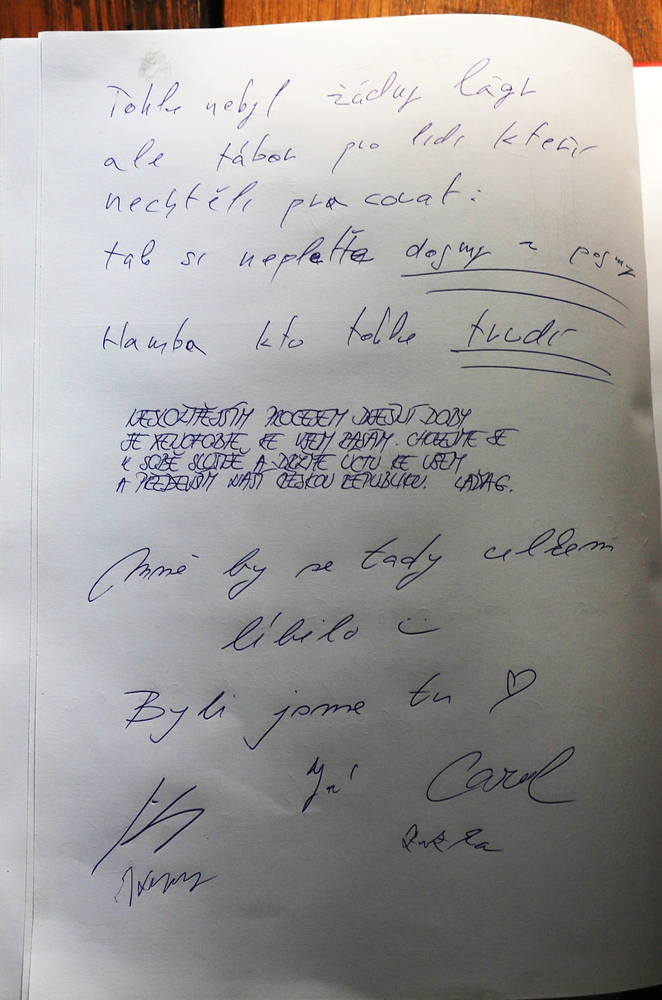 Tohle nebyl žádny lágr
ale tábor pro lidi kterir
nechtěli pracovat:
tak si neplette dogmy z pojmy
Hamba kto tohle tvrdi
NEJSLOŽITĚJŠÍM PROCESEM DNEŠNÍ DOBY
JE XENOFOBIE, KE VŠEM RASÁM. CHOVEJME SE
K SOBĚ SLUŠNĚ A DRŽME ÚCTU KE VŠEM
A PŘEDEVŠÍM NAŠÍ ČESKOU REPUBLIKU. LÁĎA G.
Mně by se tady celkem
líbilo
Byli jsme tu
Jří Carol